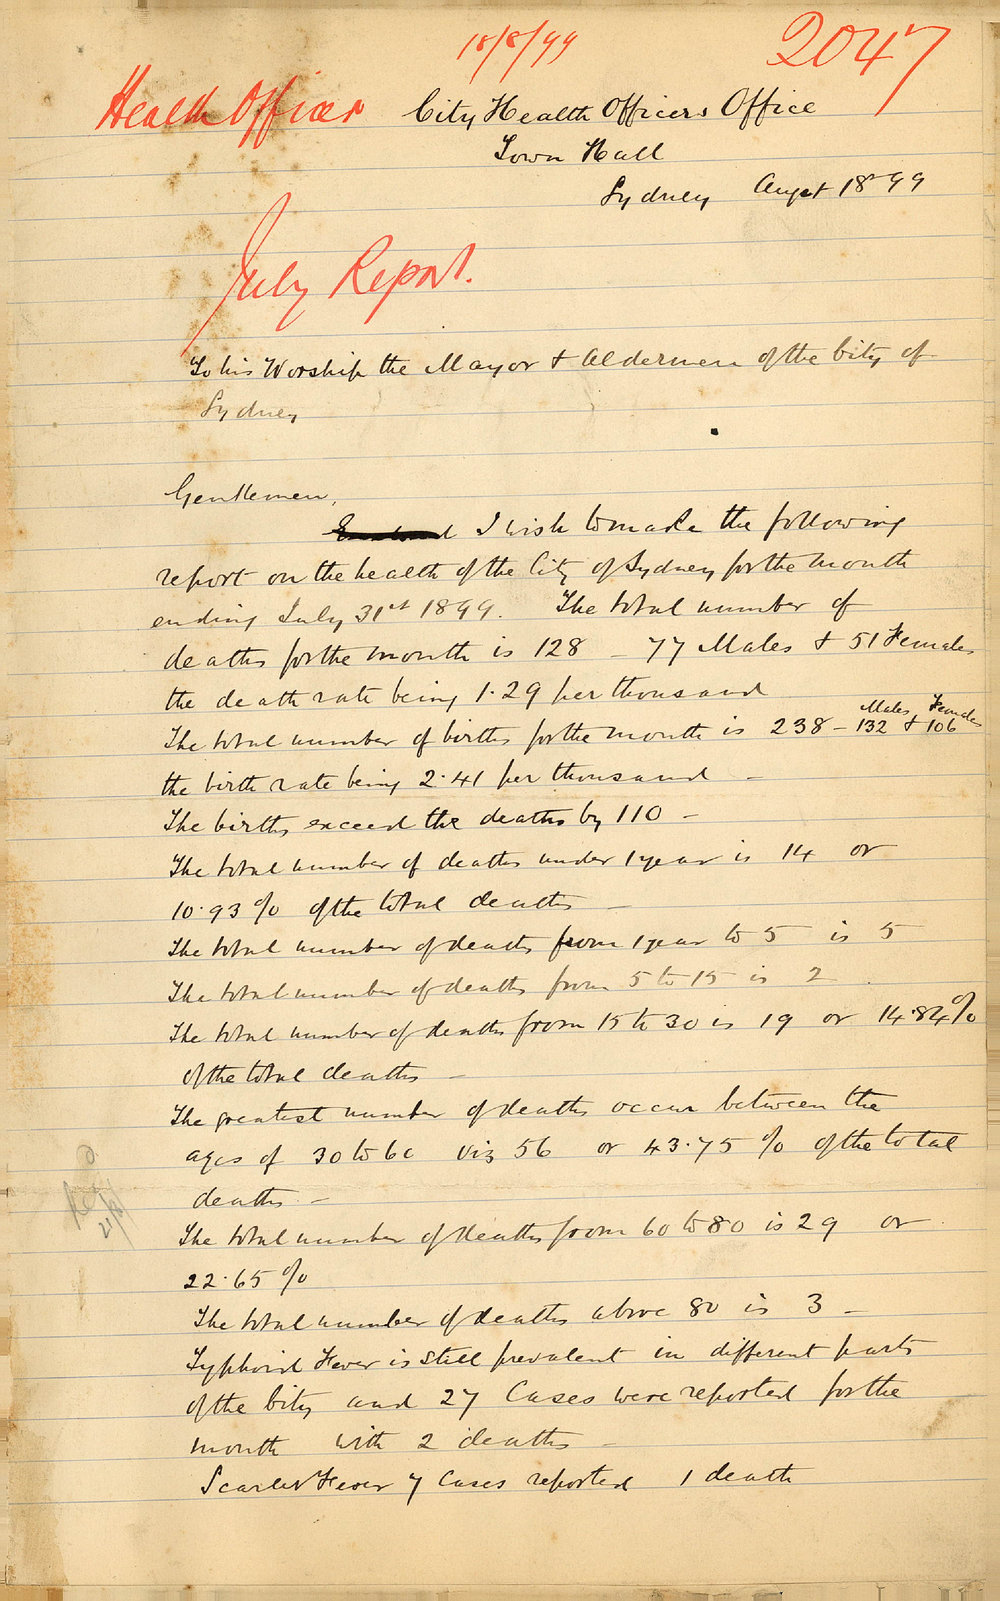 18/8/99
2047
Health Officer
City Health Officers Office
Town Hall
Sydney Augst 18th 99
July Report.
To his Worship the Mayor & Aldermen of the City of
Sydney
Gentlemen,
I wish to make the following
report on the health of the City of Sydney for the month
ending July 31st 1899. The total number of
deaths for the month is 128 – 77 Males & 51 Females
the death rate being 1.29 per thousand
The total number of births for the month is 238 – 132 Males & 106 Females
the birth rate being 2.41 per thousand –
The births exceed the deaths by 110 –
The total number of deaths under 1 year is 14 or
10.93 % of the total deaths –
The total number of deaths from 1 year to 5 is 5
The total number of deaths from 5 to 15 is 2
The total number of deaths from 15 to 30 is 19 or 14.84 %
of the total deaths –
The greatest number of deaths occur between the
ages of 30 to 60 viz 56 or 43.75 % of the total
deaths –
The total number of deaths from 60 to 80 is 29 or
22.65 %
The total number of deaths above 80 is 3 –
Typhoid Fever is still prevalent in different parts
of the City and 27 Cases were reported for the
month with 2 deaths –
Scarlet Fever 7 Cases reported 1 death